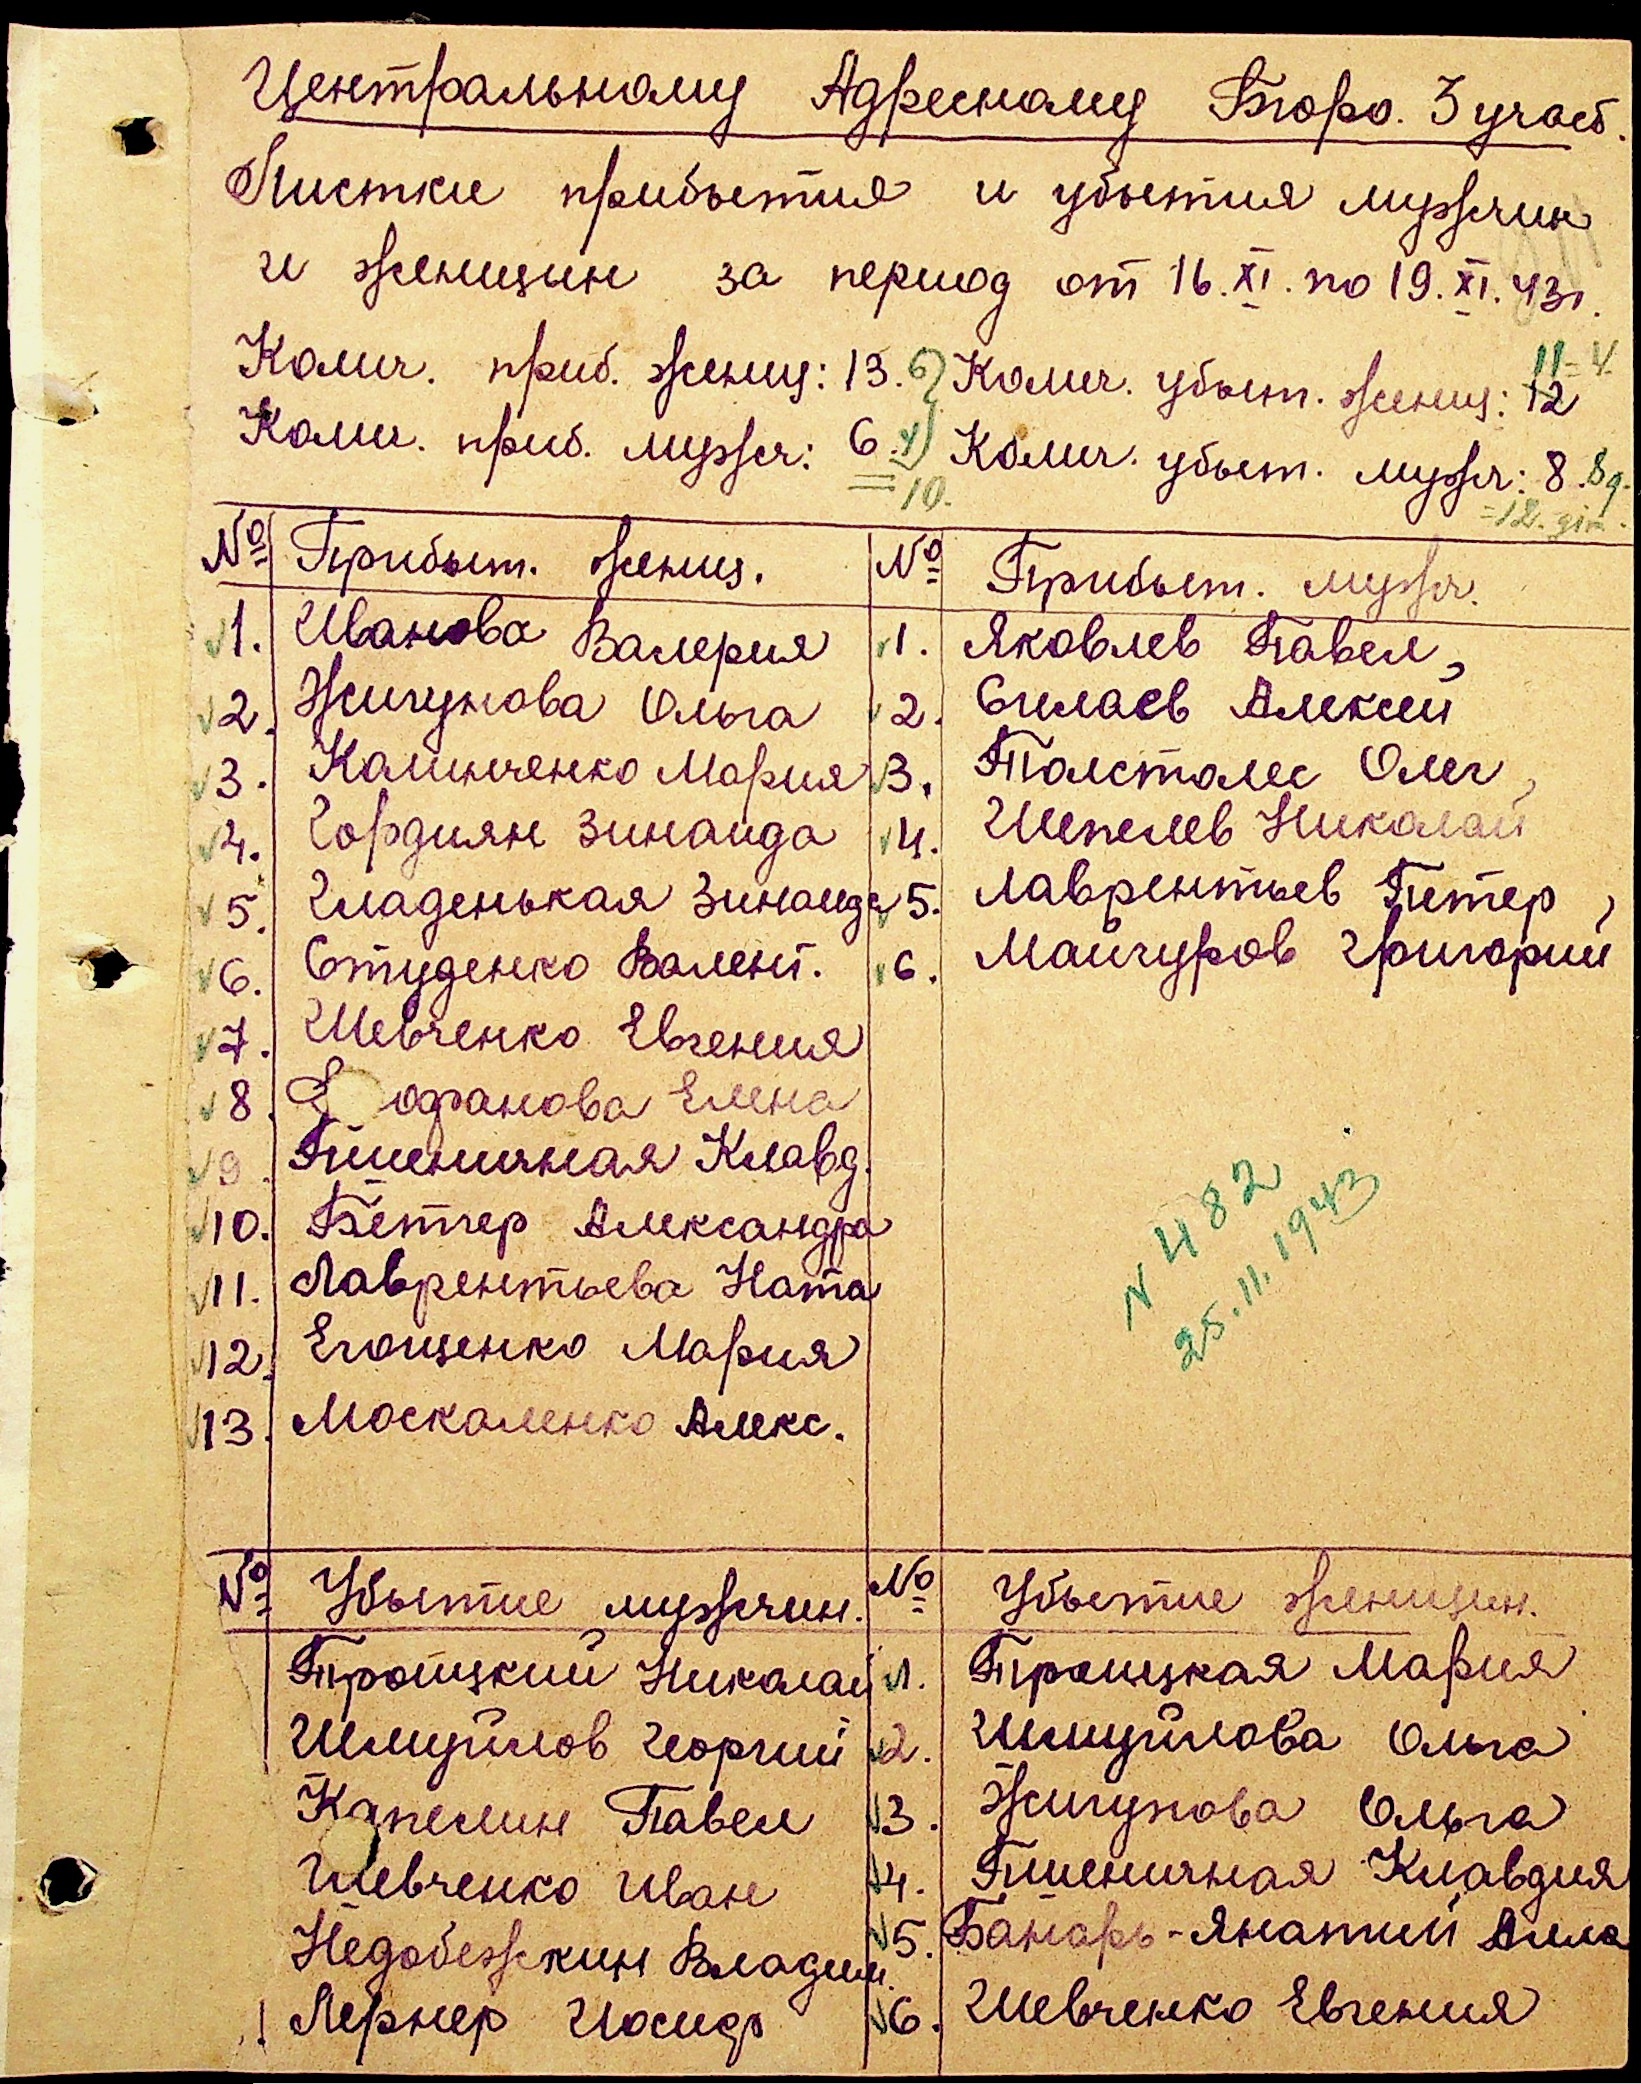 Центральному Адресному Бюро. 3 участ.
Листки прибытия и убытия мужчин
и женщин за период от 16.XI. по 19.XI.43г.
Колич. приб. женщ: 13. 6) Колич. убыт. женщ: 12 11=4.
Колич. приб. мужч: 6. 4) Колич. убыт. мужч: 8. 8д.
=10. =12.
№ Прибыт. женщ. № Прибыт. мужч.
1. Иванова Валерия 1. Яковлев Павел,
2. Жигунова Ольга 2. Силаев Алексей
3. Калинченко Мария 3. Толстолес Олег,
4. Гордиян Зинаида 4. Шепелев Николай
5. Гладенькая Зинаида 5. Лаврентьев Питер,
6. Студенко Валент. 6. Майчуров Григорий
7. Шевченко Евгения
8. офанова Елена
9. Пшеничная Клавд.
10. Бетгер Александра
11. Лаврентьева Ната
12. Егощенко Мария
13. Москаленко Алекс.
N 482
25.11.1943
№ Убытие мужчин. № Убытие женщин.
Троицкий Николай 1. Троицкая Мария
Шмуйлов Георгий 2. Шмуйлова Ольга
Капелин Павел 3. Жигунова Ольга
Шевченко Иван 4. Пшеничная Клавдия
Недобежкин Владим. 5. Банарь-Янатий Алла
Лернер Иосиф 6. Шевченко Евгения